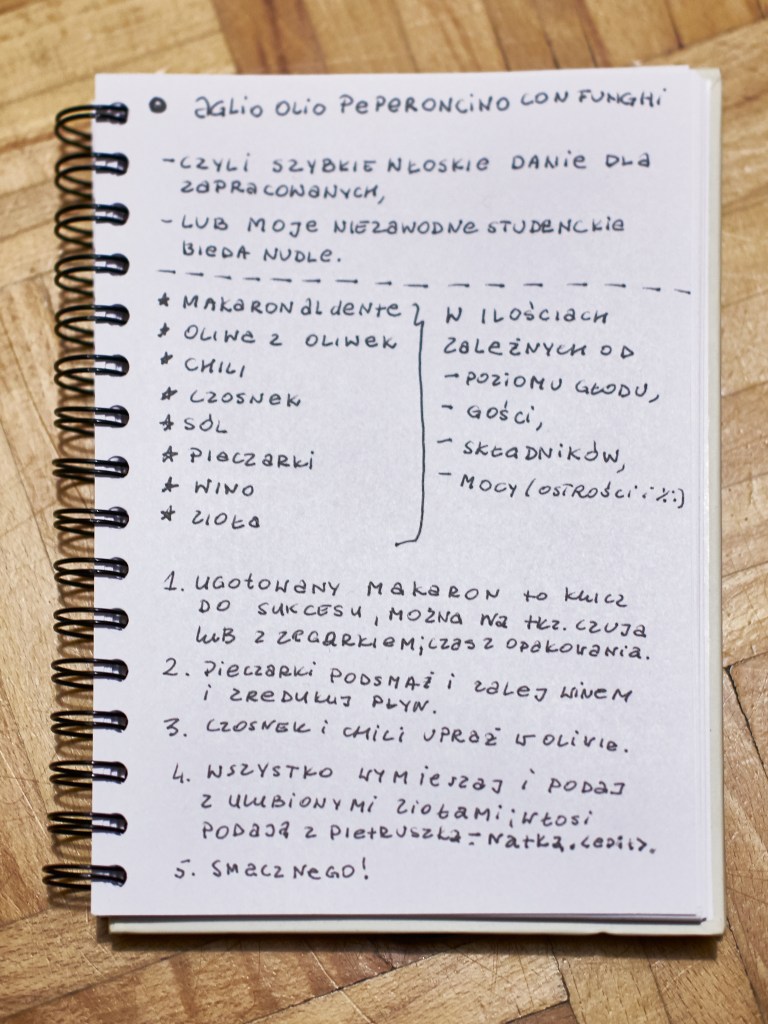 • AGLIO OLIO PEPERONCINO CON FUNGHI
- CZYLI SZYBKIE WŁOSKIE DANIE DLA
ZAPRACOWANYCH,
- LUB MOJE NIEZAWODNE STUDENCKIE
BIEDA NUDLE.
* MAKARON al dente
* OLIWA Z OLIWEK
* CHILI
* CZOSNEK
* SÓL
* PIECZARKI
* WINO
* ZIOŁA
W ILOŚCIACH
ZALEŻNYCH OD
- POZIOMU GŁODU,
- GOŚCI,
- SKŁADNIKÓW,
- MOCY (OSTROŚCI i %:)
1. UGOTOWANY MAKARON to klucz
DO SUKCESU, MOŻNA NA tkz. CZUJA
lUB Z ZEGARKIEM; CZAS Z OPAKOWANIA.
2. PIECZARKI PODSMAŻ i ZALEJ WINEM
i ZREDUKUJ PŁYN.
3. CZOSNEK i CHILI UPRAŻ W OLIWIE.
4. WSZYSTKO WYMIESZAJ i PODAJ
Z ULUBIONYMI ZIOŁAMI; WŁOSI
PODAJĄ Z PIETRUSZKĄ - NATKĄ.
5. SMACZNEGO!